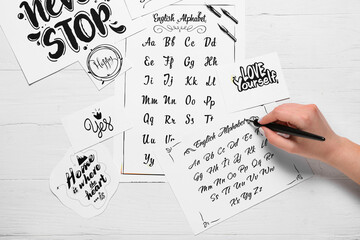 NEVER
STOP
Yes
Home
is where
the
heart
is
English Alphabet
Aa Bb Cc Dd
Ee Ff Gg Hh
Ii Jj Kk Ll
Mm Nn Oo Pp
Qq Rr Ss Tt
Uu Vv Ww Xx
Yy
LOVE
Yourself
English Alphabet
Aa Bb Cc Dd
Ee Ff Gg Hh Ii
Jj Kk Ll Mm Nn
Oo Pp Qq Rr Ss Tt
Uu Vv Ww
Xx Yy Zz